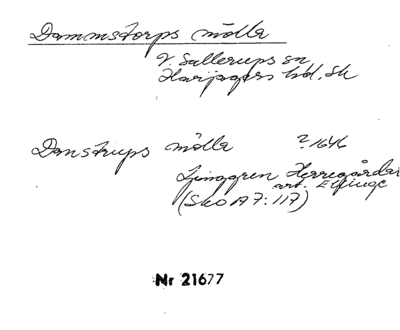 Dammstorps mölla
V. Sallerups sn
Harjagers hd. Sk
Danstrups mölla ? 1646
Ljunggren Herregårdar
art. Ellinge
(Sko A 7: 117)
Nr 21677